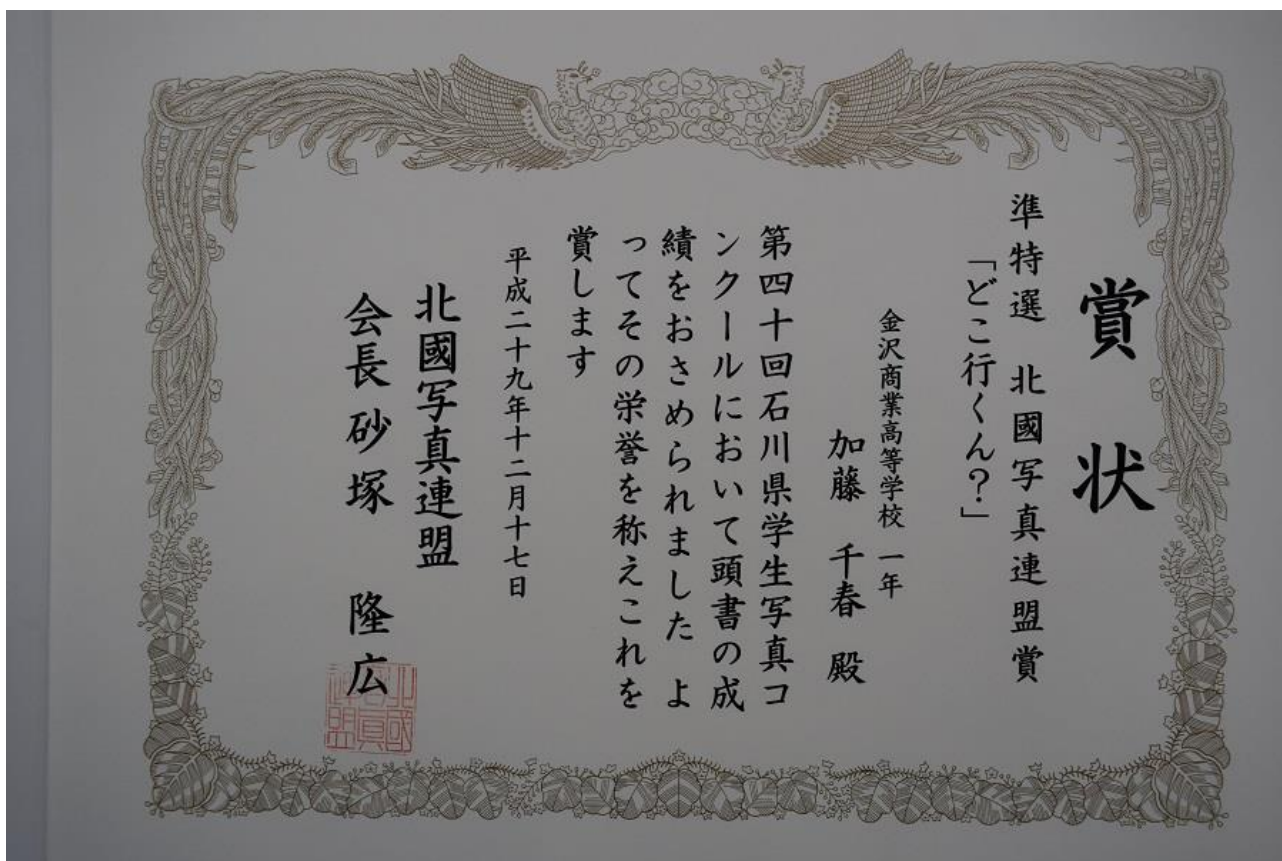 賞状
準特選 北國写真連盟賞
「どこ行くん？」
金沢商業高等学校 一年
加藤 千春 殿
第四十回石川県学生写真コ
ンクールにおいて頭書の成
績をおさめられました よ
ってその栄誉を称えこれを
賞します
平成二十九年十二月十七日
北國写真連盟
会長 砂塚 隆広
北國
写真
連盟